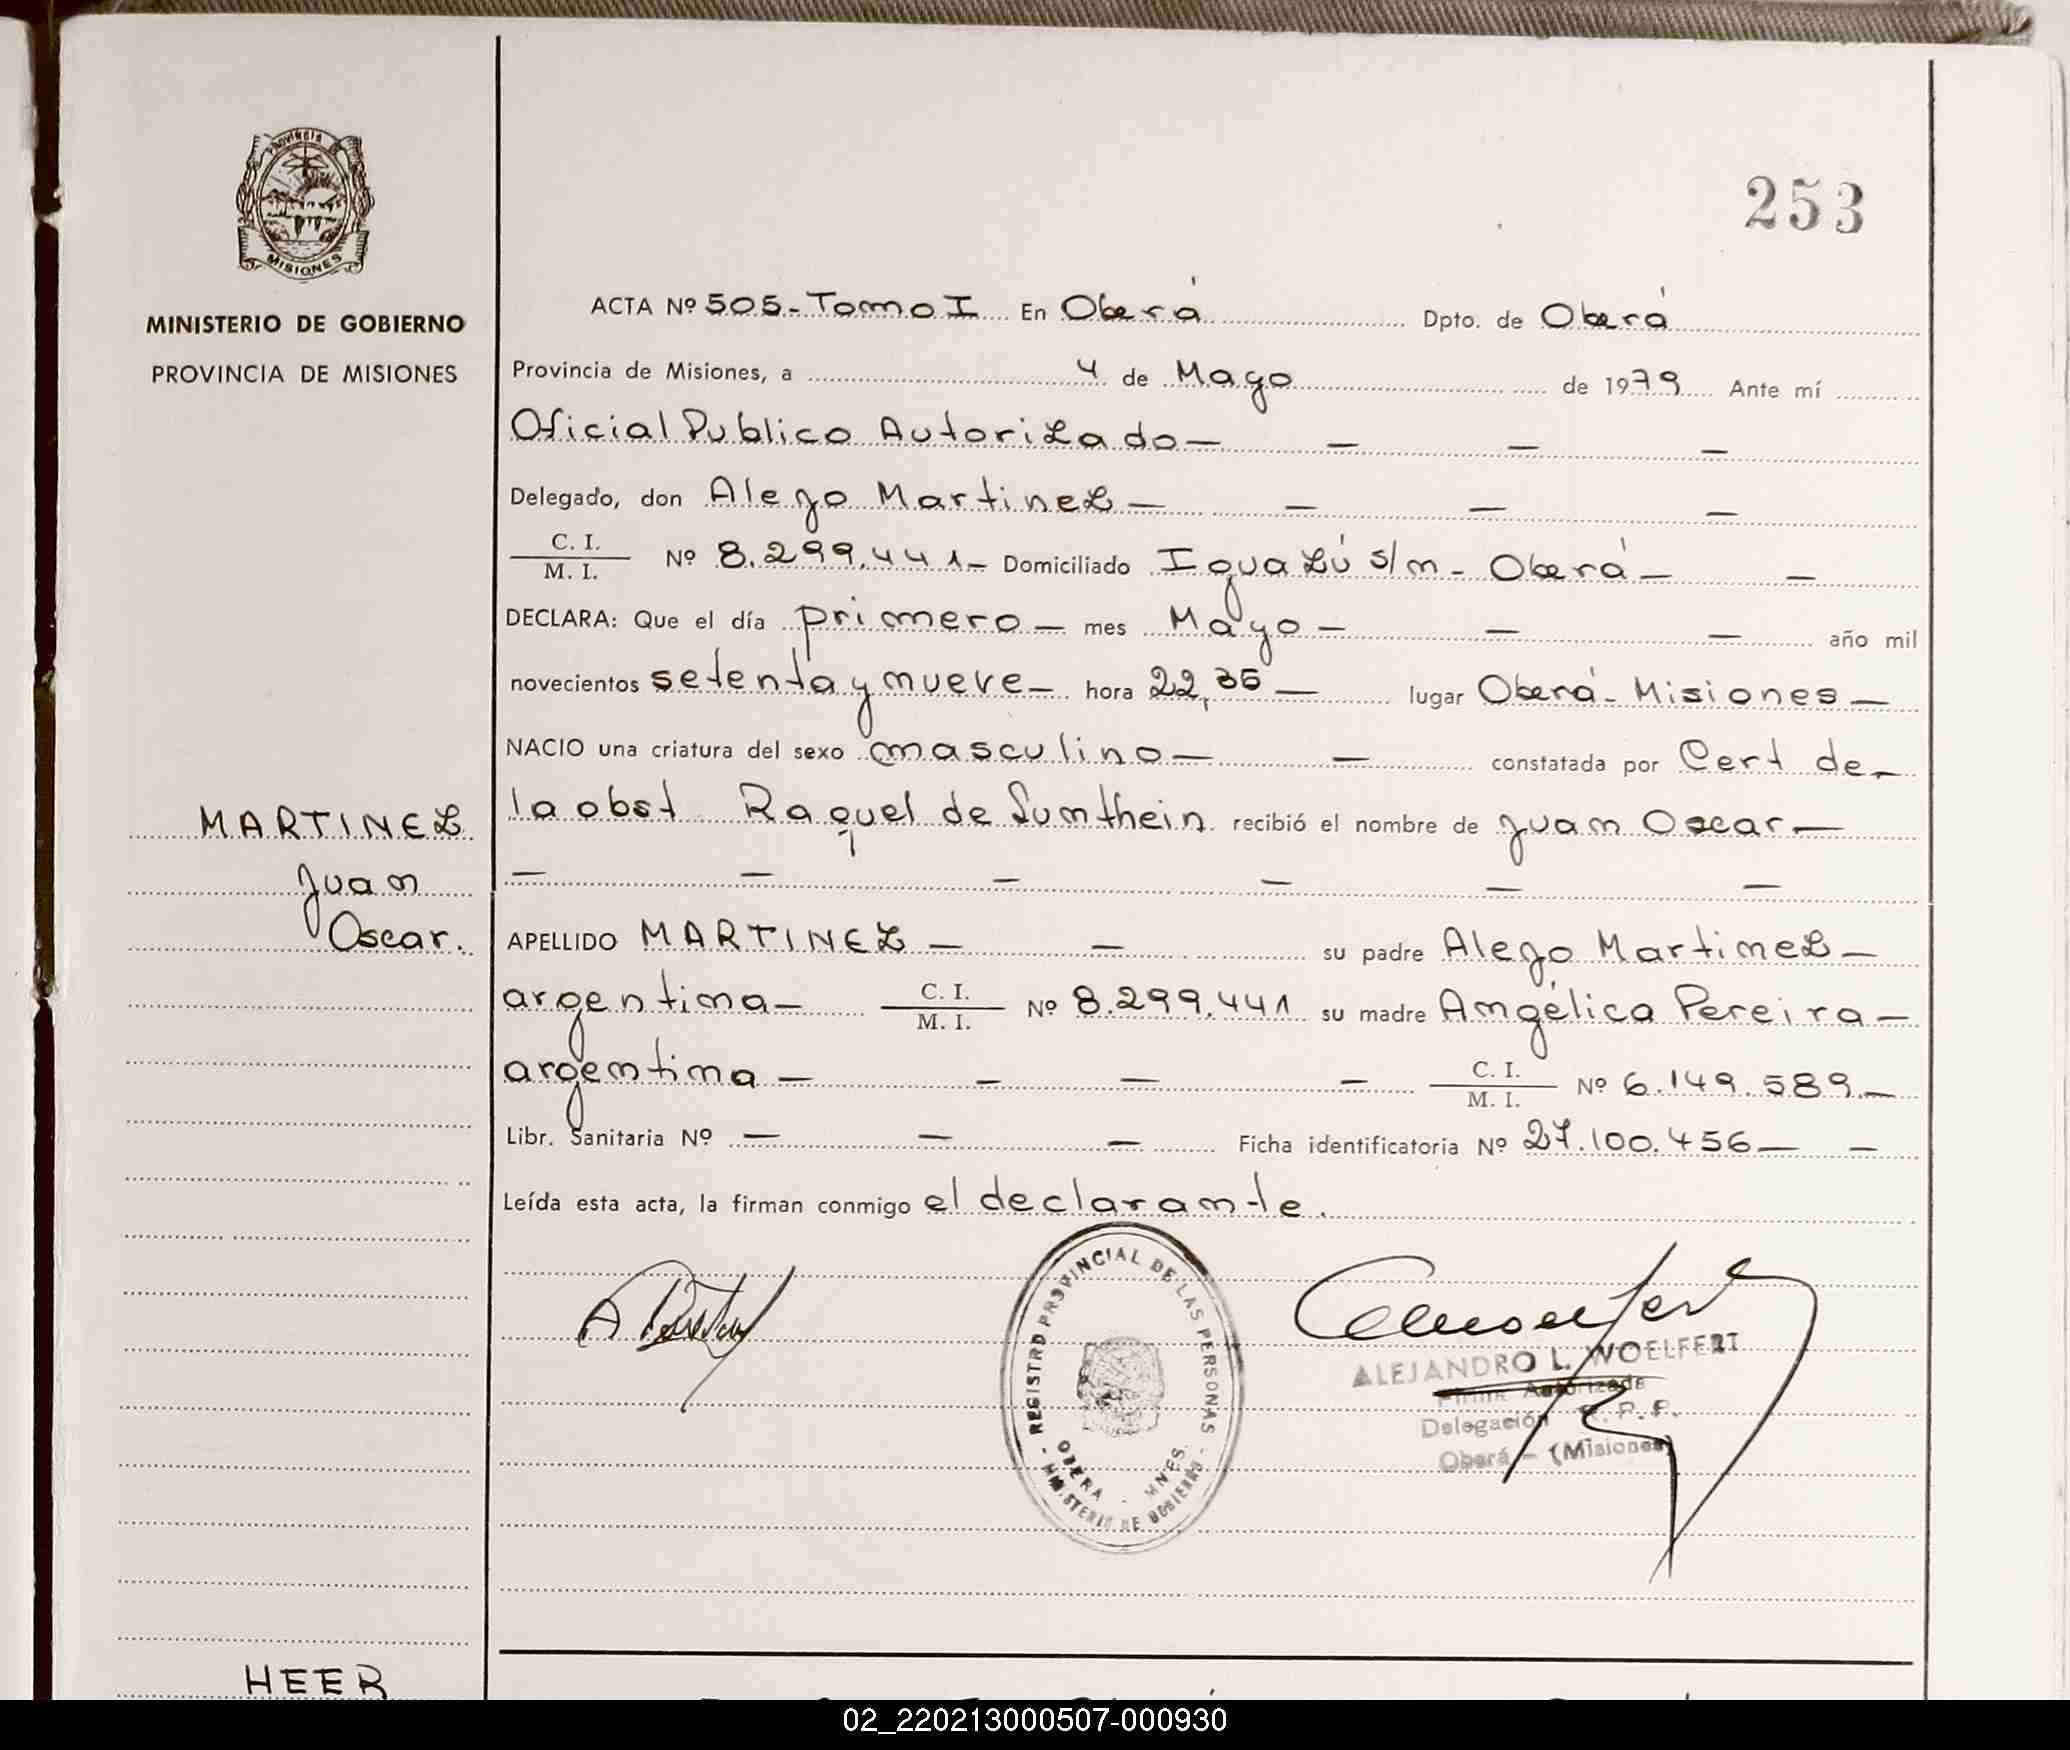 Provincia de
MISIONES
MINISTERIO DE GOBIERNO
PROVINCIA DE MISIONES
253
ACTA Nº 505-Tomo I En Oberá Dpto. de Oberá
Provincia de Misiones, a 4 de Mayo de 1979 Ante mí
Oficial Publico Autorizado — — — —
Delegado, don Alejo Martinez — — — —
C. I.
M. I. Nº 8.299.441- Domiciliado Iguazú s/n - Oberá — —
DECLARA: Que el día primero — mes Mayo — — — año mil
novecientos setenta y nueve — hora 22,35 — lugar Oberá - Misiones —
NACIO una criatura del sexo masculino — — constatada por Cert de-
la obst Raquel de Sumthein recibió el nombre de Juan Oscar —
— — — — — —
MARTINEZ
Juan
Oscar.
APELLIDO MARTINEZ — — su padre Alejo Martinez —
argentina — C. I.
M. I. Nº 8.299.441 su madre Angélica Pereira —
argentina — — — — C. I.
M. I. Nº 6.149.589.—
Libr. Sanitaria Nº — — — Ficha identificatoria Nº 27.100.456 — —
Leída esta acta, la firman conmigo el declarante.
REGISTRO PROVINCIAL DE LAS PERSONAS -
OBERA - MNES.
MINISTERIO DE GOBIERNO
ALEJANDRO L. WOELFERT
Firma Autorizada
Delegación R. P. P.
Oberá - (Misiones)
HEER
02_220213000507-000930